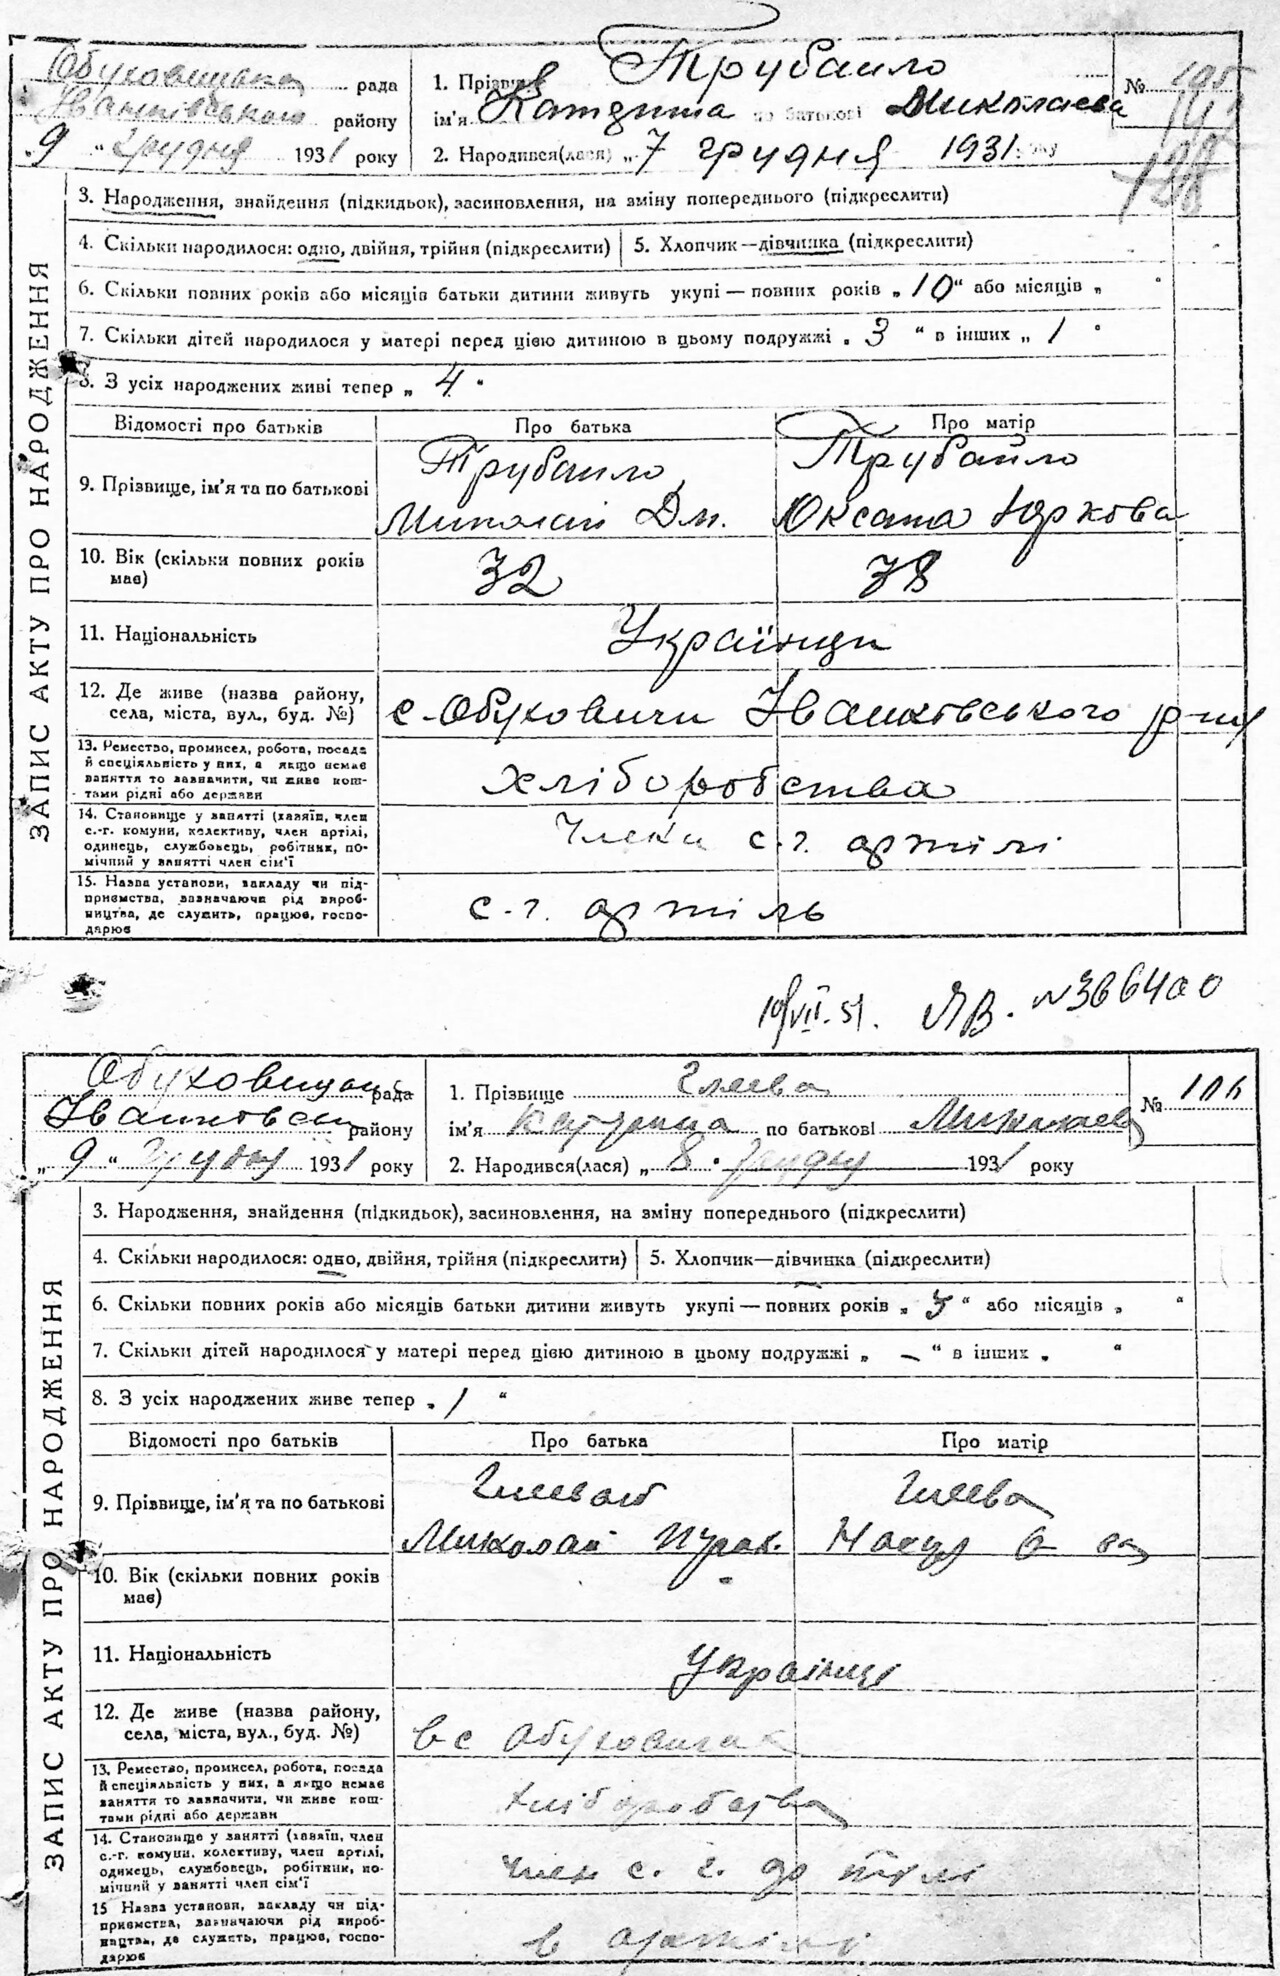 Обуховицька рада
Іванківського району
"9" Грудня 1931 року
1. Прізвище Трубайло
ім'я Катерина по батькові Миколаєва
2. Народився(лася) "7 грудня 1931 року
№ 105
138
ЗАПИС АКТУ ПРО НАРОДЖЕННЯ
3. Народження, знайдення (підкидьок), засиновлення, на зміну попереднього (підкреслити)
4. Скільки народилося: одно, двійня, трійня (підкреслити) 5. Хлопчик—дівчинка (підкреслити)
6. Скільки повних років або місяців батьки дитини живуть укупі — повних років „10" або місяців „ "
7. Скільки дітей народилося у матері перед цією дитиною в цьому подружжі „3" в інших „1"
8. З усіх народжених живі тепер „4"
Відомості про батьків Про батька Про матір
9. Прізвище, ім'я та по батькові
Трубайло Трубайло
Миколай Дм. Оксана Юркова
10. Вік (скільки повних років має) 32 38
11. Національність Українци
12. Де живе (назва району,
села, міста, вул., буд. №) с. Обуховичи Іванковського р-ну
13. Ремество, промисел, робота, посада
й спеціяльність у них, а якщо немає
заняття то зазначити, чи живе кош-
тами рідні або держави
хліборобства
14. Становище у занятті (хазяїн, член
с.-г. комуни, колективу, член артілі,
одинець, службовець, робітник, по-
мічний у занятті член сім'ї
Члени с.г. артілі
15. Назва установи, закладу чи під-
приємства, зазначаючи рід вироб-
ництва, де служить, працює, госпо-
дарює
с.-г. артіль
10/VII.51. ЯВ. №366400
Обуховицька рада
Іванковськ району
„9" Грудня 1931 року
1. Прізвище
ім'я Катерина по батькові Миколаєва
2. Народився(лася) „8" грудня 1931 року
№ 106
ЗАПИС АКТУ ПРО НАРОДЖЕННЯ
3. Народження, знайдення (підкидьок), засиновлення, на зміну попереднього (підкреслити)
4. Скільки народилося: одно, двійня, трійня (підкреслити) 5. Хлопчик—дівчинка (підкреслити)
6. Скільки повних років або місяців батьки дитини живуть укупі — повних років „3" або місяців „ "
7. Скільки дітей народилося у матері перед цією дитиною в цьому подружжі „ — " в інших „ "
8. З усіх народжених живе тепер „1"
Відомості про батьків Про батька Про матір
9. Прізвище, ім'я та по батькові
Миколай
10. Вік (скільки повних років
має)
11. Національність Українці
12. Де живе (назва району,
села, міста, вул., буд. №) в с Обуховичах
13. Ремество, промисел, робота, посада
й спеціяльність у них, а якщо немає
заняття то зазначити, чи живе кош-
тами рідні або держави
хліборобства
14. Становище у занятті (хазяїн, член
с.-г. комуни, колективу, член артілі,
одинець, службовець, робітник, по-
мічний у занятті член сім'ї
член с. г. артілі
15 Назва установи, закладу чи під-
приємства, зазначаючи рід вироб-
ництва, де служить, працює, госпо-
дарює
в артілі